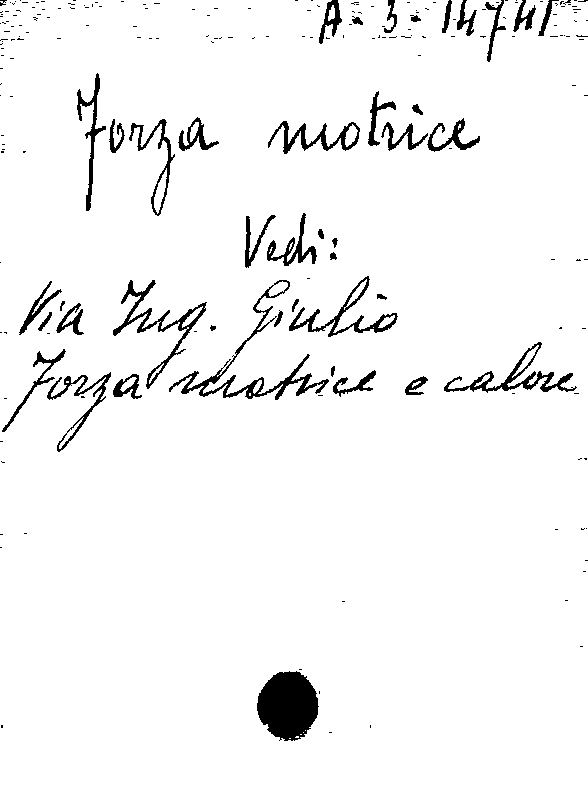 A-3-14741
Forza motrice
Vedi:
Via Ing. Giulio
Forza motrice e calore